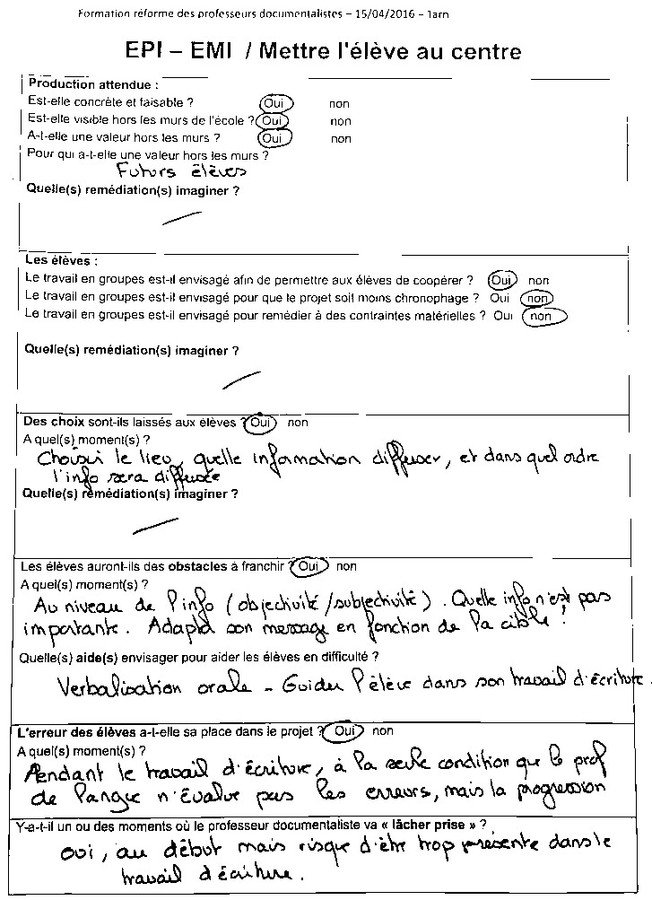 Formation réforme des professeurs documentalistes – 15/04/2016 – 1arn
EPI – EMI / Mettre l'élève au centre
Production attendue :
Est-elle concrète et faisable ? Oui non
Est-elle visible hors les murs de l'école ? Oui non
A-t-elle une valeur hors les murs ? Oui non
Pour qui a-t-elle une valeur hors les murs ?
Futurs élèves
Quelle(s) remédiation(s) imaginer ?
Les élèves :
Le travail en groupes est-il envisagé afin de permettre aux élèves de coopérer ? Oui non
Le travail en groupes est-il envisagé pour que le projet soit moins chronophage ? Oui non
Le travail en groupes est-il envisagé pour remédier à des contraintes matérielles ? Oui non
Quelle(s) remédiation(s) imaginer ?
Des choix sont-ils laissés aux élèves ? Oui non
A quel(s) moment(s) ?
Choisir le lieu, quelle information diffuser, et dans quel ordre
l'info sera diffusée
Quelle(s) remédiation(s) imaginer ?
Les élèves auront-ils des obstacles à franchir ? Oui non
A quel(s) moment(s) ?
Au niveau de l'info (objectivité/subjectivité). Quelle info n'est pas
importante. Adapter son message en fonction de la cible !
Quelle(s) aide(s) envisager pour aider les élèves en difficulté ?
Verbalisation orale - Guider l'élève dans son travail d'écriture.
L'erreur des élèves a-t-elle sa place dans le projet ? Oui non
A quel(s) moment(s) ?
Pendant le travail d'écriture, à la seule condition que le prof
de langue n'évalue pas les erreurs, mais la progression
Y-a-t-il un ou des moments où le professeur documentaliste va « lâcher prise » ?
oui, au début mais risque d'être trop présente dans le
travail d'écriture.